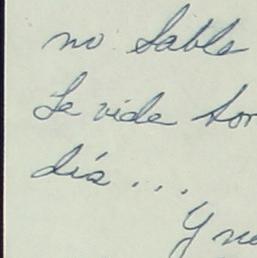 no sable
La vida tor
día...
y no